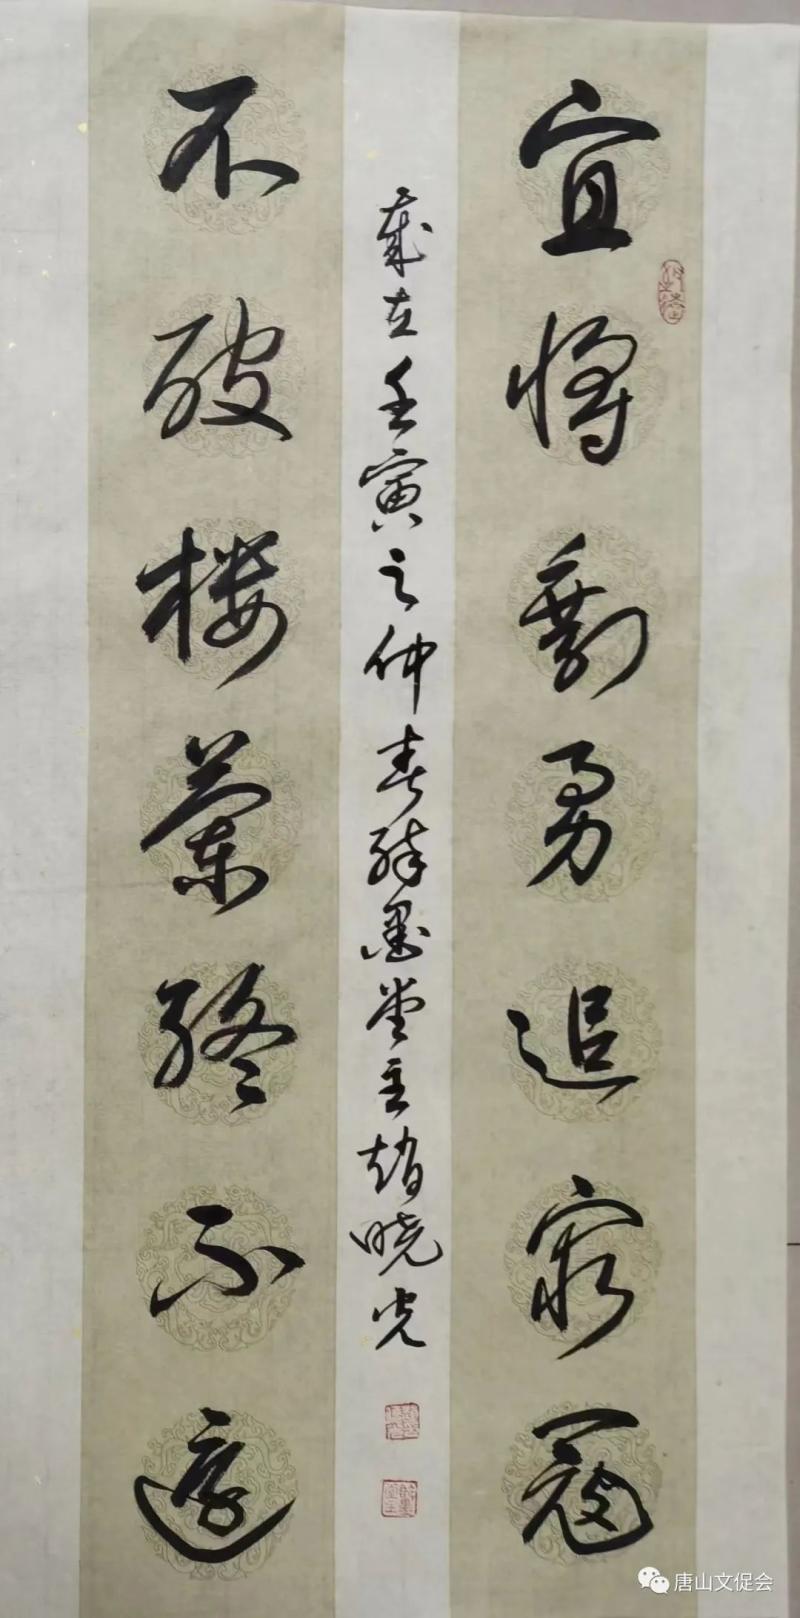 宜将剩勇追穷寇
岁在壬寅之仲春醉墨堂主赵晓光
不破楼兰终不还
唐山文促会